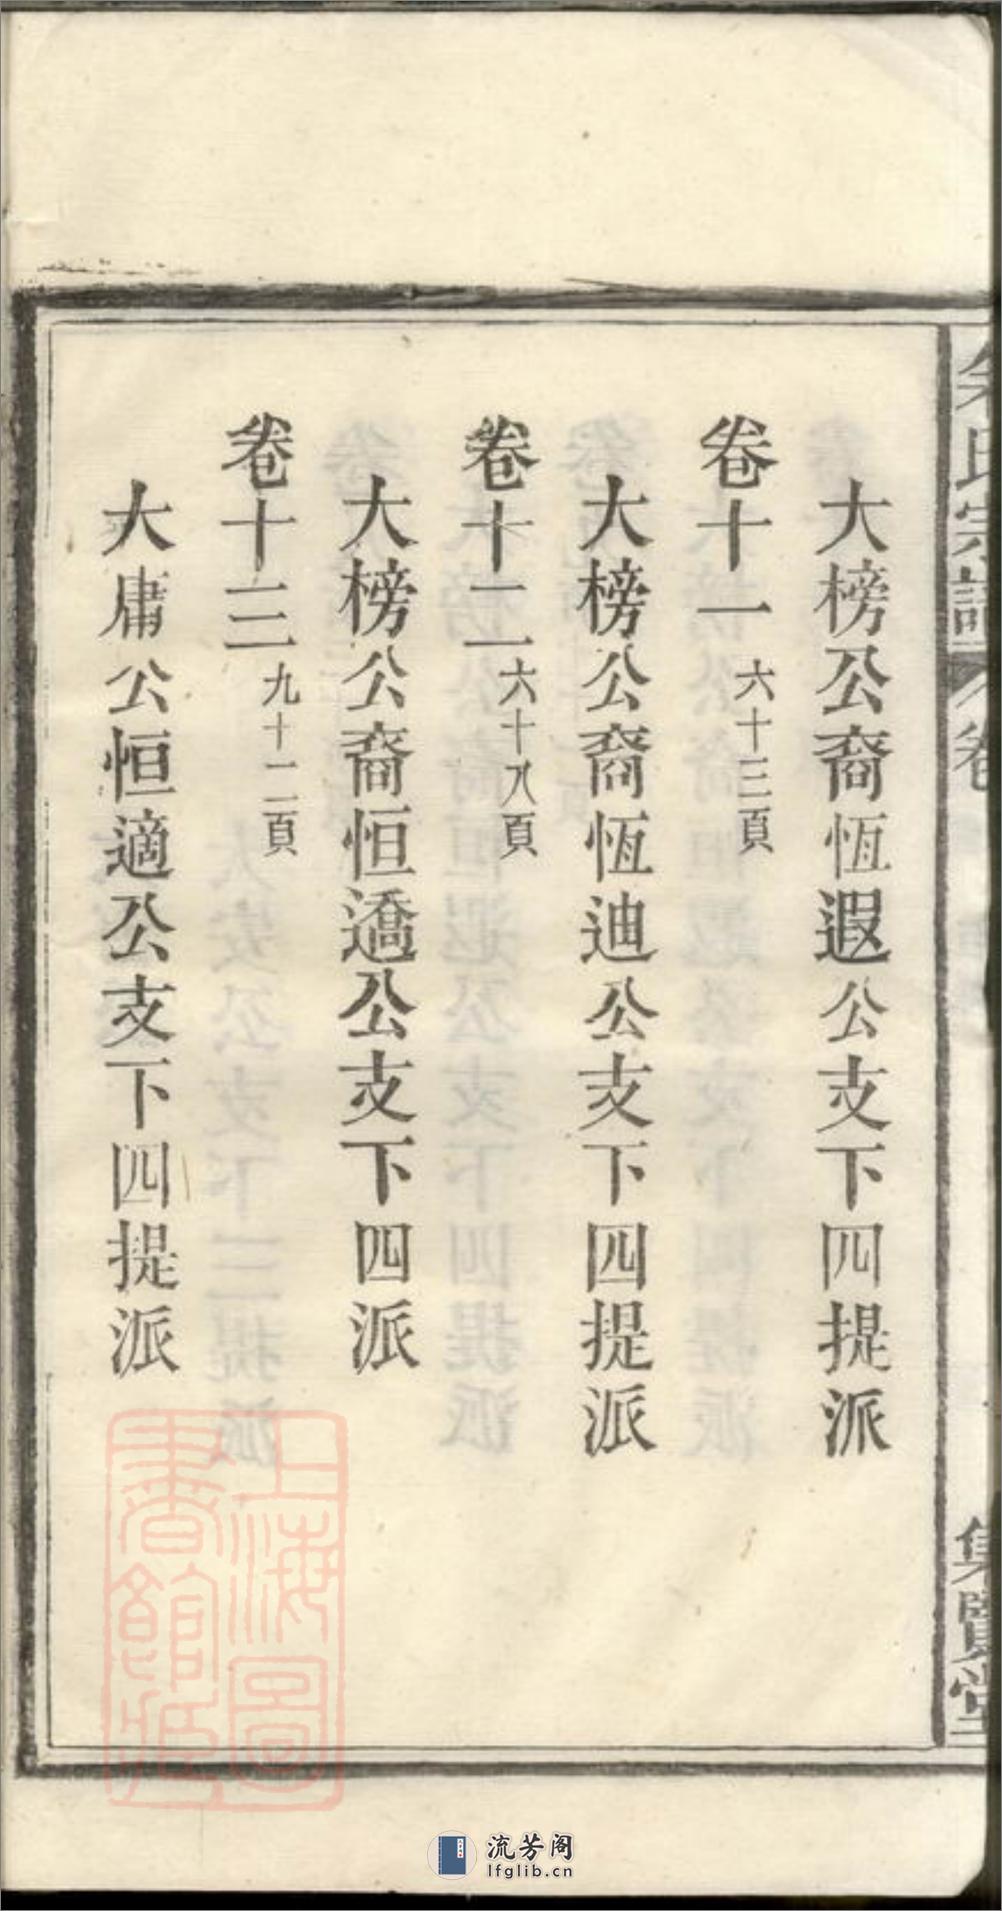 大榜公裔恆遐公支下四提派
卷十一 六十三頁
大榜公裔恆迪公支下四提派
卷十二 六十八頁
大榜公裔恒適公支下四派
卷十三 九十二頁
大庸公恒適公支下四提派
氏宗譜
卷
集賢堂
上海圖
書館藏
流芳阁
lfglib.cn